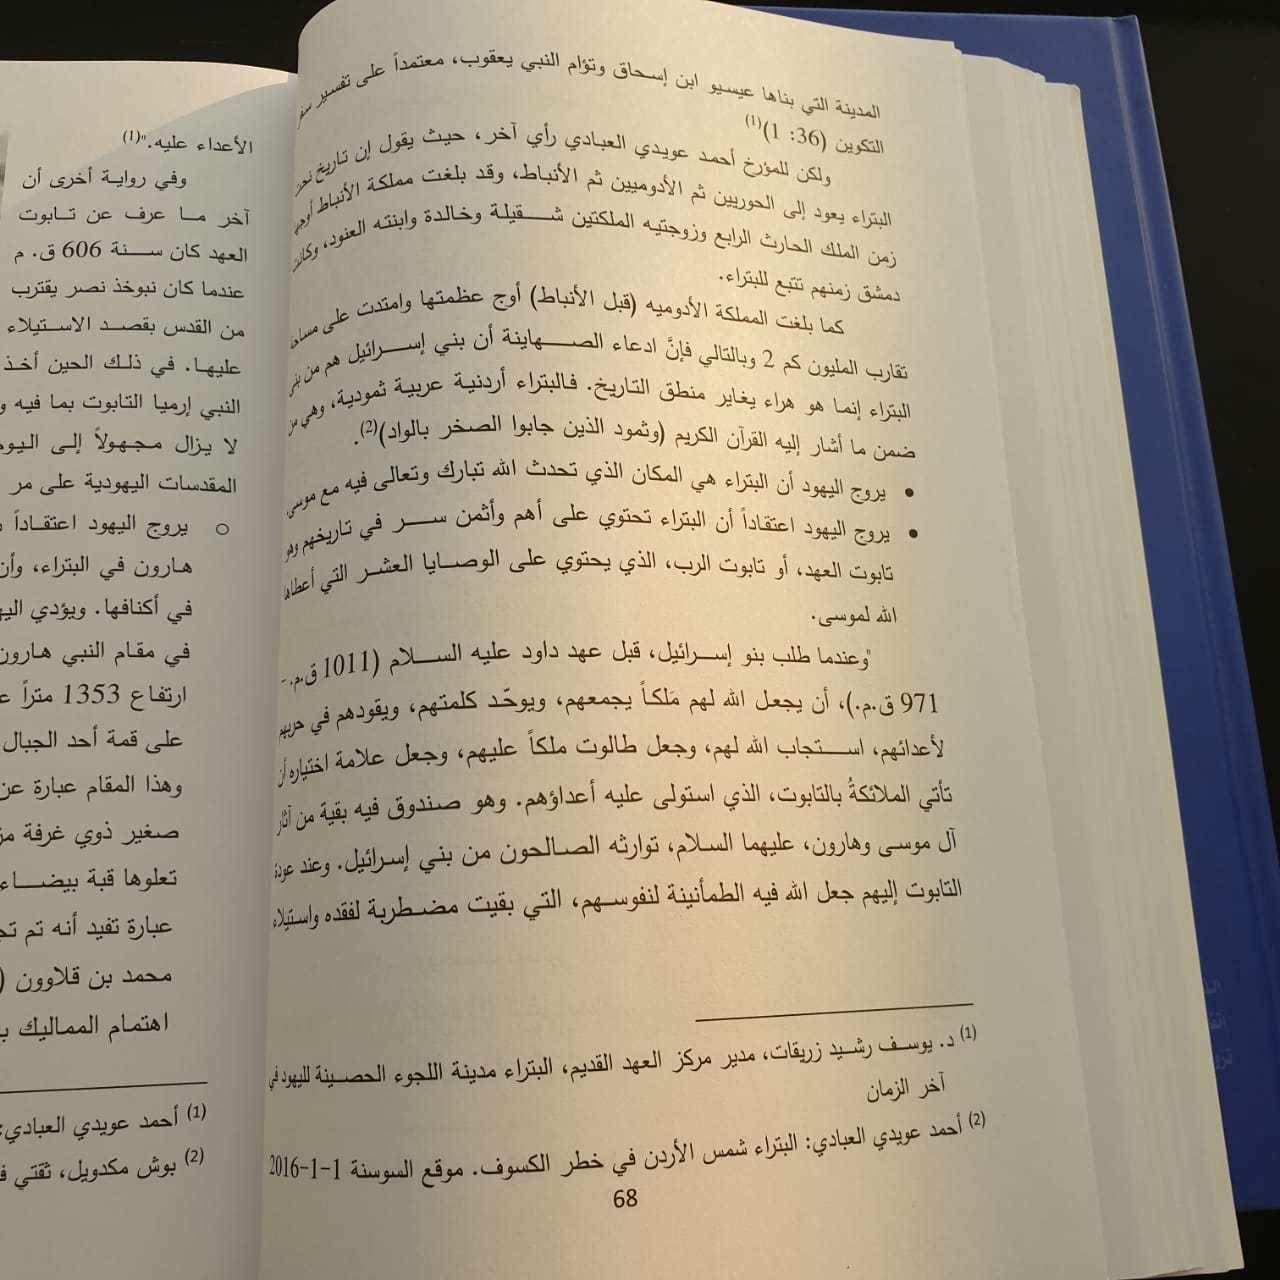 المدينة التي بناها عيسيو ابن إسحاق وتؤام النبي يعقوب، معتمداً على تفسير سفر
التكوين (36: 1)(1)
ولكن للمؤرخ أحمد عويدي العبادي رأي آخر، حيث يقول إن تاريخ نحت
البتراء يعود إلى الحوريين ثم الأدوميين ثم الأنباط، وقد بلغت مملكة الأنباط أوجها
زمن الملك الحارث الرابع وزوجتيه الملكتين شقيلة وخالدة وابنته العنود، وكانت
دمشق زمنهم تتبع للبتراء.
كما بلغت المملكة الأدوميه (قبل الأنباط) أوج عظمتها وامتدت على مساحة
تقارب المليون كم 2 وبالتالي فإنَّ ادعاء الصهاينة أن بني إسرائيل هم من بنى
البتراء إنما هو هراء يغاير منطق التاريخ. فالبتراء أردنية عربية ثمودية، وهي من
ضمن ما أشار إليه القرآن الكريم (وثمود الذين جابوا الصخر بالواد)(2).
• يروج اليهود أن البتراء هي المكان الذي تحدث الله تبارك وتعالى فيه مع موسى.
• يروج اليهود اعتقاداً أن البتراء تحتوي على أهم وأثمن سر في تاريخهم وهو
تابوت العهد، أو تابوت الرب، الذي يحتوي على الوصايا العشر التي أعطاها
الله لموسى.
"وعندما طلب بنو إسرائيل، قبل عهد داود عليه السلام (1011 ق.م. -
971 ق.م.)، أن يجعل الله لهم مَلكاً يجمعهم، ويوحّد كلمتهم، ويقودهم في حربهم
لأعدائهم، استجاب الله لهم، وجعل طالوت ملكاً عليهم، وجعل علامة اختياره أن
تأتي الملائكةُ بالتابوت، الذي استولى عليه أعداؤهم. وهو صندوق فيه بقية من آثار
آل موسى وهارون، عليهما السلام، توارثه الصالحون من بني إسرائيل. وعند عودة
التابوت إليهم جعل الله فيه الطمأنينة لنفوسهم، التي بقيت مضطربة لفقده واستيلاء
(1) د. يوسف رشيد زريقات، مدير مركز العهد القديم، البتراء مدينة اللجوء الحصينة لليهود في
آخر الزمان
(2) أحمد عويدي العبادي: البتراء شمس الأردن في خطر الكسوف. موقع السوسنة 1-1-2016
68
الأعداء عليه."(1)
وفي رواية أخرى أن
آخر ما عرف عن تابوت
العهد كان سنة 606 ق. م
عندما كان نبوخذ نصر يقترب
من القدس بقصد الاستيلاء
عليها. في ذلك الحين أخذ
النبي إرميا التابوت بما فيه
لا يزال مجهولاً إلى اليوم
المقدسات اليهودية على مر
○ يروج اليهود اعتقاداً
هارون في البتراء، وأن
في أكنافها. ويؤدي
في مقام النبي هارون
ارتفاع 1353 متراً
على قمة أحد الجبال
وهذا المقام عبارة عن
صغير ذوي غرفة
تعلوها قبة بيضاء
عبارة تفيد أنه تم
محمد بن قلاوون (
اهتمام المماليك
(1) أحمد عويدي العبادي:
(2) بوش مكدويل، ثقتي